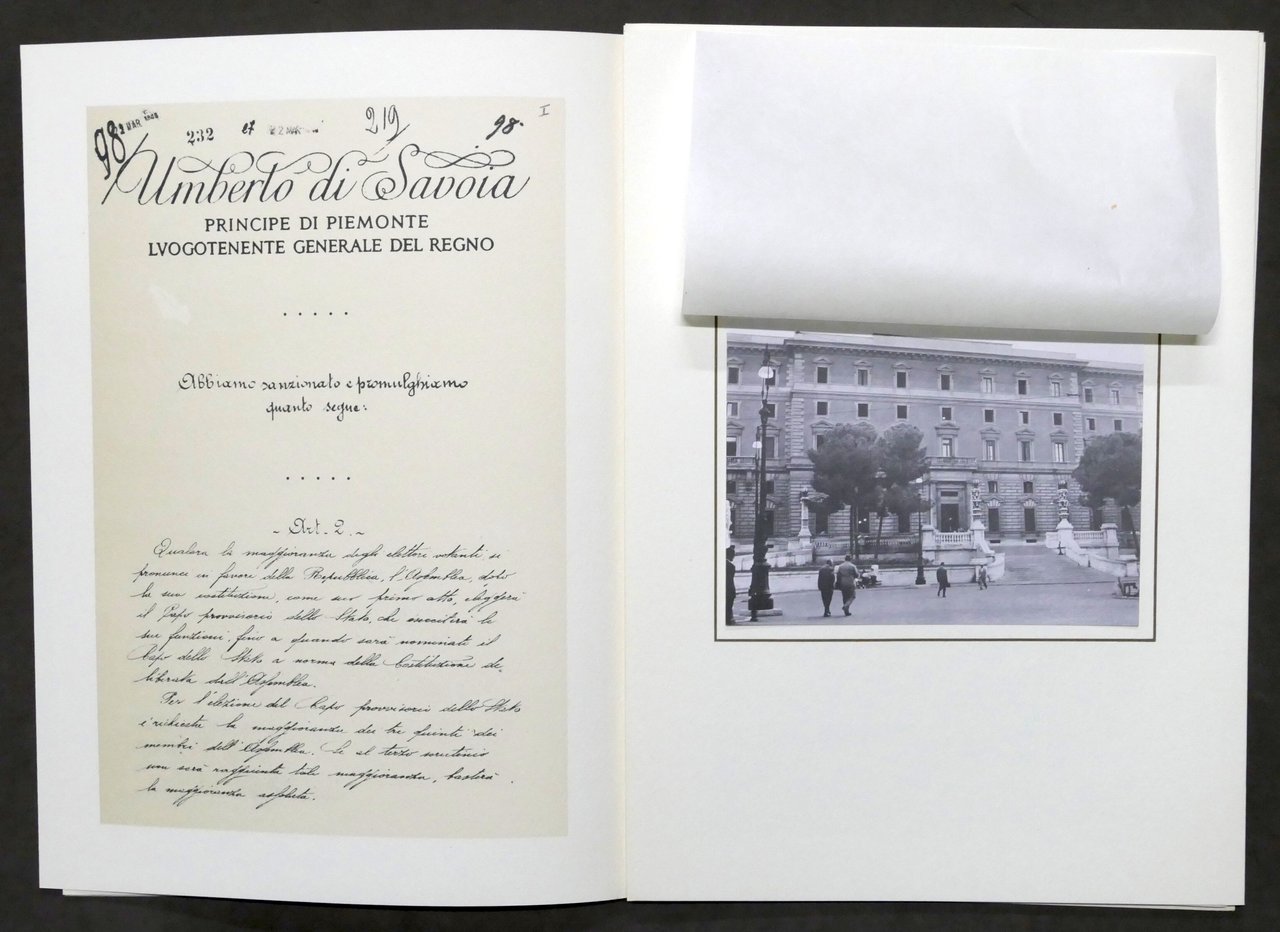 98 2 MAR 1946 232 et 2 MAR 219 98. I
Umberto di Savoia
PRINCIPE DI PIEMONTE
LVOGOTENENTE GENERALE DEL REGNO
. . . . .
Abbiamo sanzionato e promulghiamo
quanto segue:
. . . . .
- Art. 2. -
Qualora la maggioranza degli elettori votanti si
pronunci in favore della Repubblica, l'Assemblea, dopo
la sua costituzione, come suo primo atto, eleggerà
il Capo provvisorio dello Stato, che eserciterà le
sue funzioni, fino a quando sarà nominato il
Capo dello Stato a norma della Costituzione de-
liberata dall'Assemblea.
Per l'elezione del Capo provvisorio dello Stato
è richiesta la maggioranza dei tre quinti dei
membri dell'Assemblea. Se al terzo scrutinio
non sarà raggiunta tale maggioranza, basterà
la maggioranza assoluta.